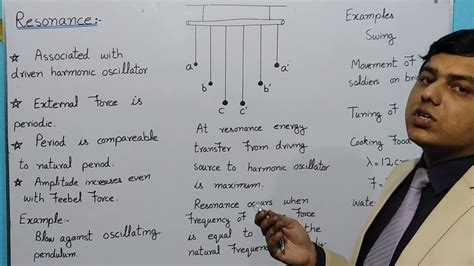 Resonance:-
☆ Associated with
driven harmonic oscillator
☆ External Force is
periodic.
☆ Period is compareable
to natural period.
☆ Amplitude increases even
with Feebel Force.
Example:-
Blow against oscillating
pendulum.
a
b
c
c'
b'
a'
At resonance energy
transfer From driving
source to harmonic oscillator
is maximum.
Resonance occurs when
Frequency of Force
is equal to
natural Frequency
Examples
Swing
Movement of
soldiers on
Tuning of
Cooking Food
λ = 12cm